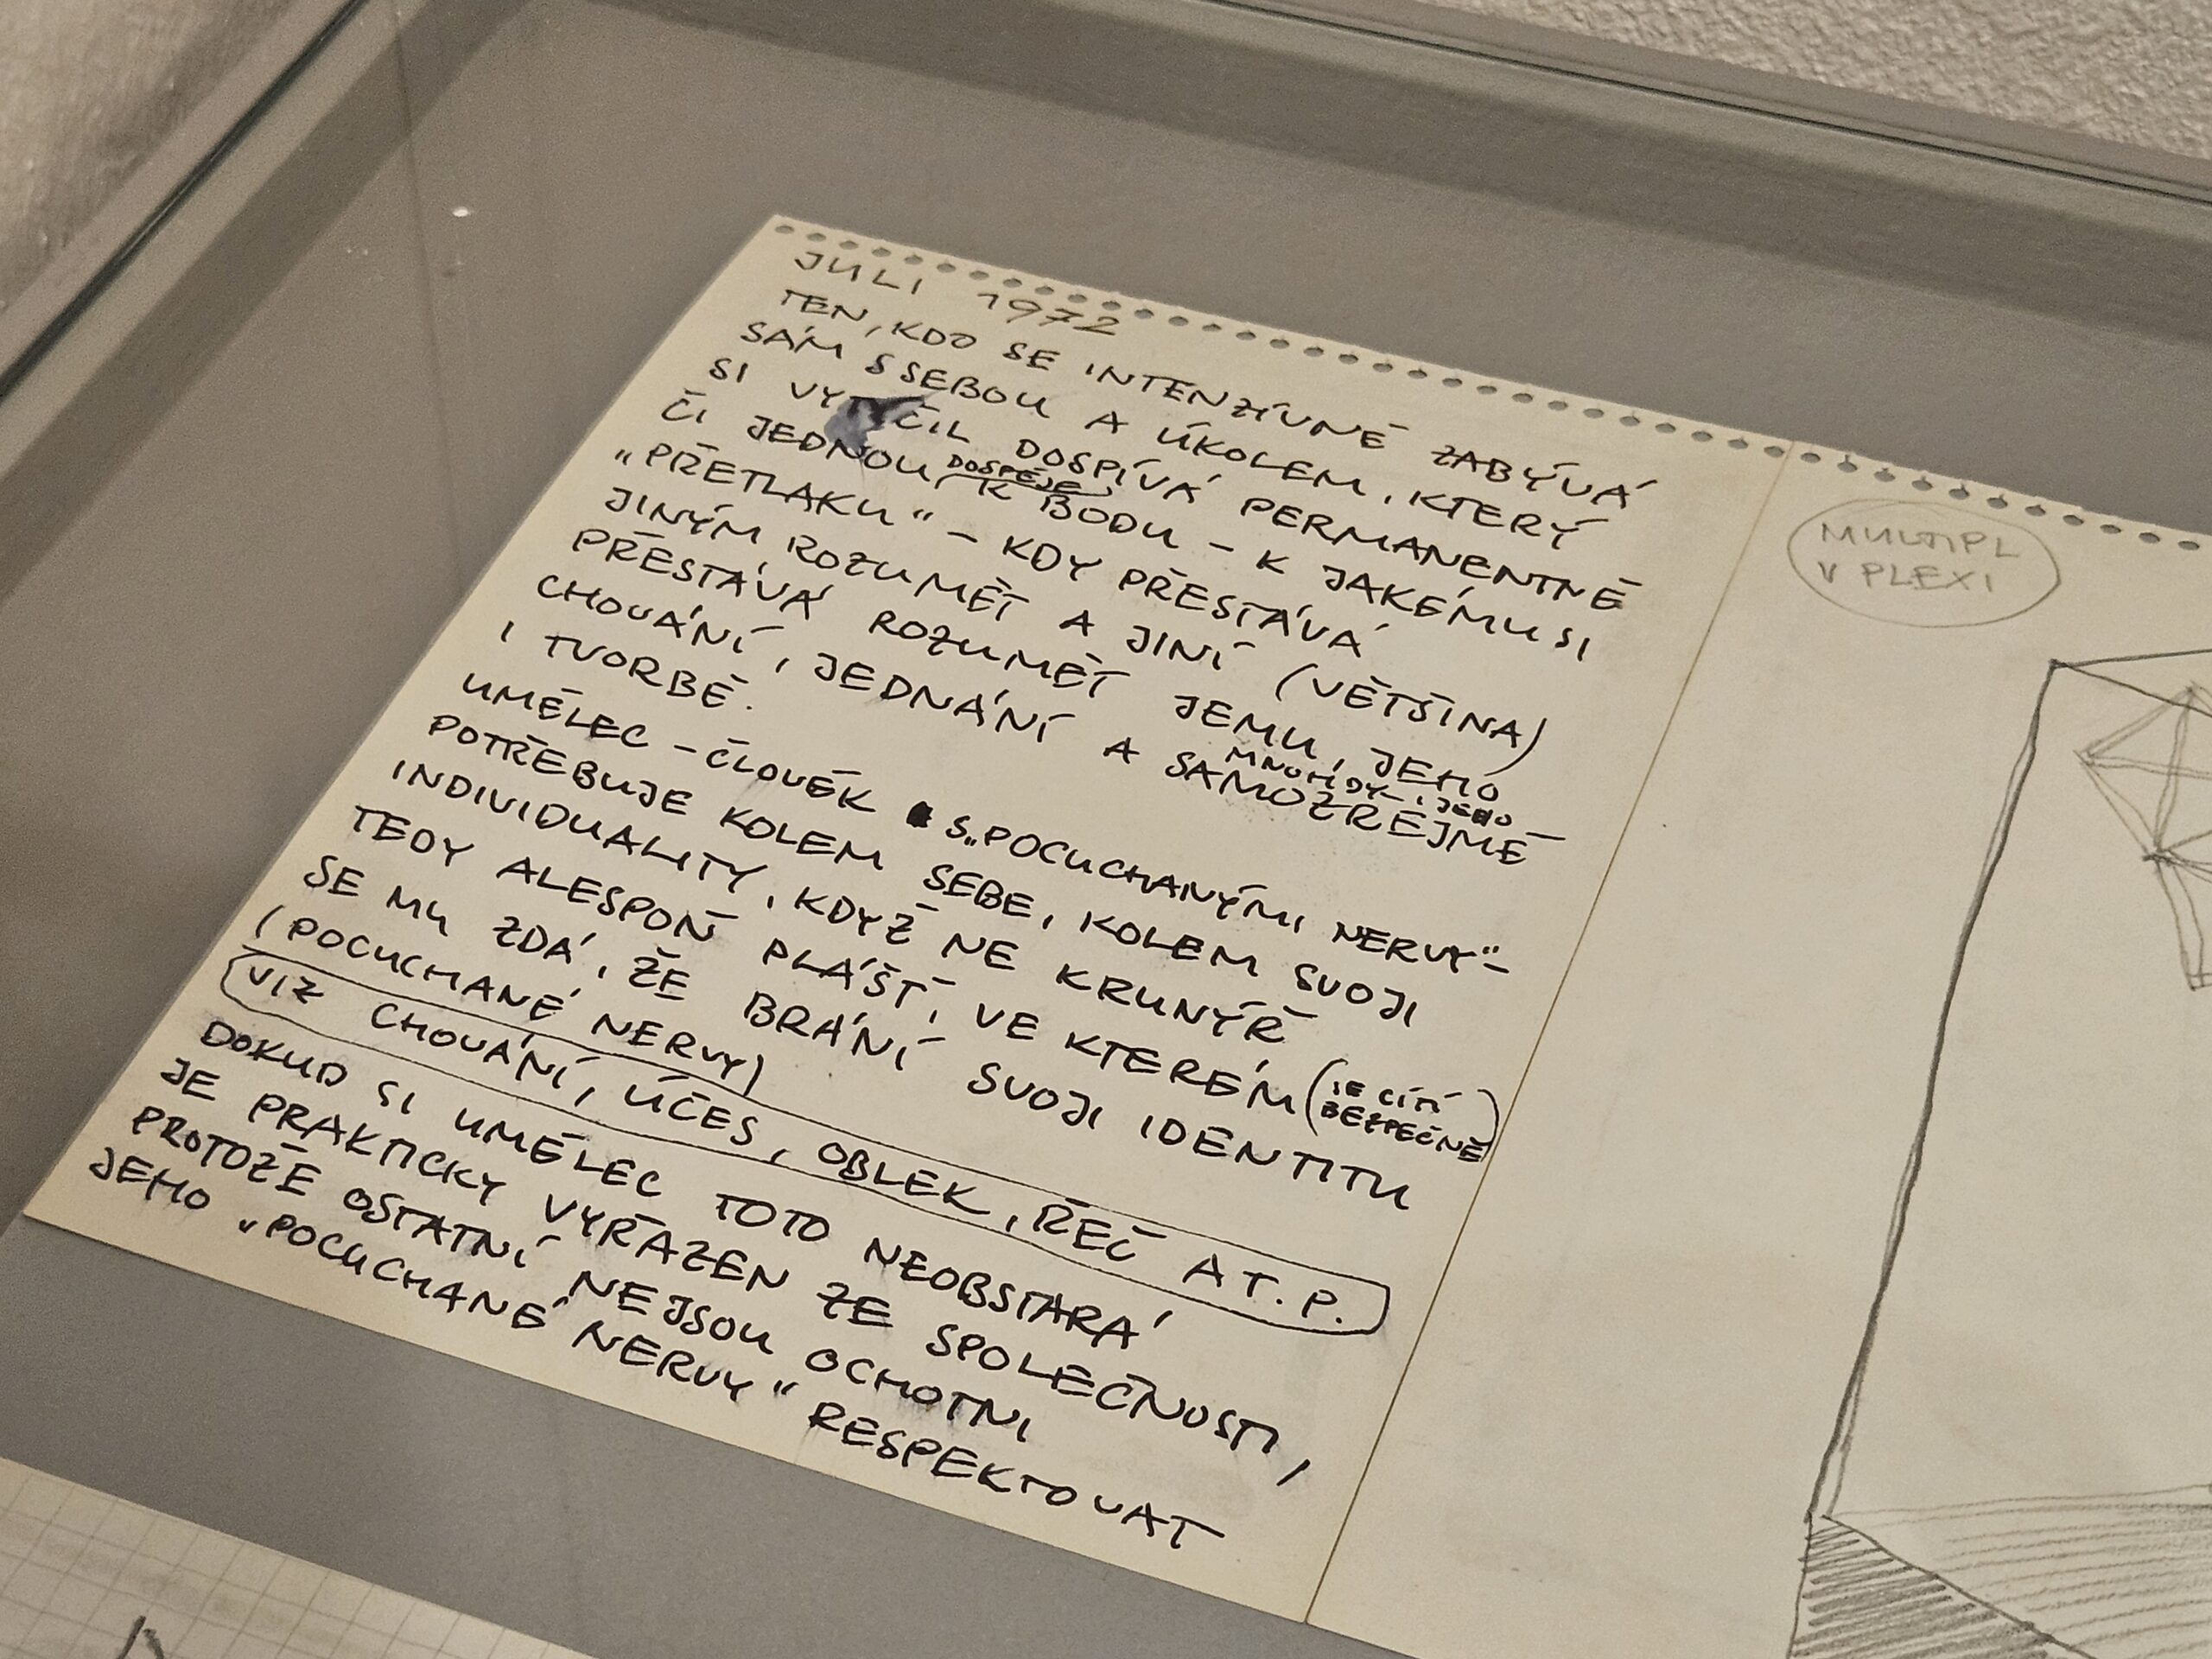 JULI 1972
TEN, KDO SE INTENZÍVNĚ ZABÝVÁ
SÁM S SEBOU A ÚKOLEM, KTERÝ
SI VYTYČIL DOSPÍVÁ PERMANENTNĚ
ČI JEDNOU DOSPĚJE K BODU – K JAKÉMUSI
„PŘETLAKU“ – KDY PŘESTÁVÁ
JINÝM ROZUMĚT A JINÍ (VĚTŠINA)
PŘESTÁVÁ ROZUMĚT JEMU, JEHO
CHOVÁNÍ, JEDNÁNÍ A SAMOZŘEJMĚ
MNOHDY I JEHO
I TVORBĚ.
UMĚLEC – ČLOVĚK S „POCUCHANÝMI NERVY“ –
POTŘEBUJE KOLEM SEBE, KOLEM SVOJI
INDIVIDUALITY, KDYŽ NE KRUNÝŘ
TEDY ALESPOŇ PLÁŠŤ, VE KTERÉM (SE CÍTÍ
BEZPEČNĚ)
SE MU ZDÁ, ŽE BRÁNÍ SVOJI IDENTITU
(POCUCHANÉ NERVY)
VIZ CHOVÁNÍ, ÚČES, OBLEK, ŘEČ A T.P.
DOKUD SI UMĚLEC TOTO NEOBSTARÁ
JE PRAKTICKY VYŘAZEN ZE SPOLEČNOSTI,
PROTOŽE OSTATNÍ NEJSOU OCHOTNI
JEHO „POCUCHANÉ NERVY“ RESPEKTOVAT
MULTIPL
V PLEXI